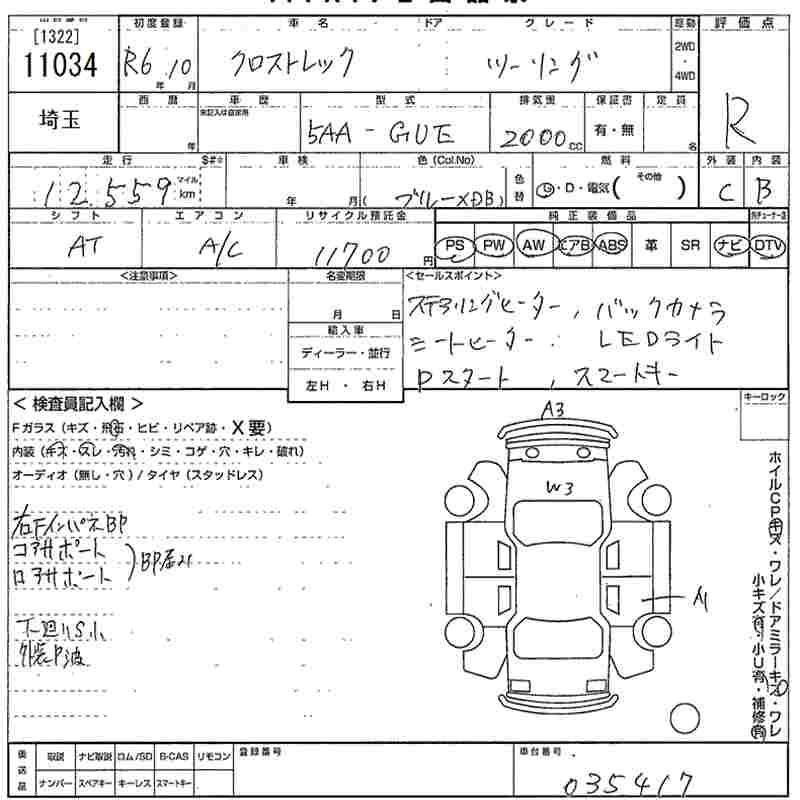 [1322]
11034
埼玉
初度登録
R6 10
年 月
車名
クロストレック
ドア
グレード
ツーリング
駆動
2WD
・
4WD
評価点
R
西暦
年
車歴
未記入は自家用
型式
5AA-GUE
排気量
2000 cc
保証書
有・無
定員
名
走行
$#*
12.559
マイル
km
車検
年 月
色(Col.No)
(ブルーメDB)
色替
燃料
G・D・電気( その他 )
外装
C
内装
B
シフト
AT
エアコン
A/C
リサイクル預託金
11700 円
純正装備品
PS PW AW エアB ABS 革 SR ナビ DTV
<注意事項>
名変期限
月 日
輸入車
ディーラー・並行
左H ・ 右H
<セールスポイント>
ステアリングヒーター, バックカメラ
シートヒーター. LEDライト
Pスタート, スマートキー
キーロック
< 検査員記入欄 >
Fガラス(キズ・飛石・ヒビ・リペア跡・X要)
内装(キズ・スレ・汚れ・シミ・コゲ・穴・キレ・破れ)
オーディオ(無し・穴)/ タイヤ(スタッドレス)
右FインパネBP
コアサポート
ロアサポート
BP歪み
下廻りS小
外装P波
A3
W3
A1
ホイルCP キズ・ワレ/ドアミラーキズ・ワレ
小キズ有・小U有・補修有
後送品
取説 ナビ取説 ロム/SD B-CAS リモコン
ナンバー スペアキー キーレス スマートキー
登録番号
車台番号
035417